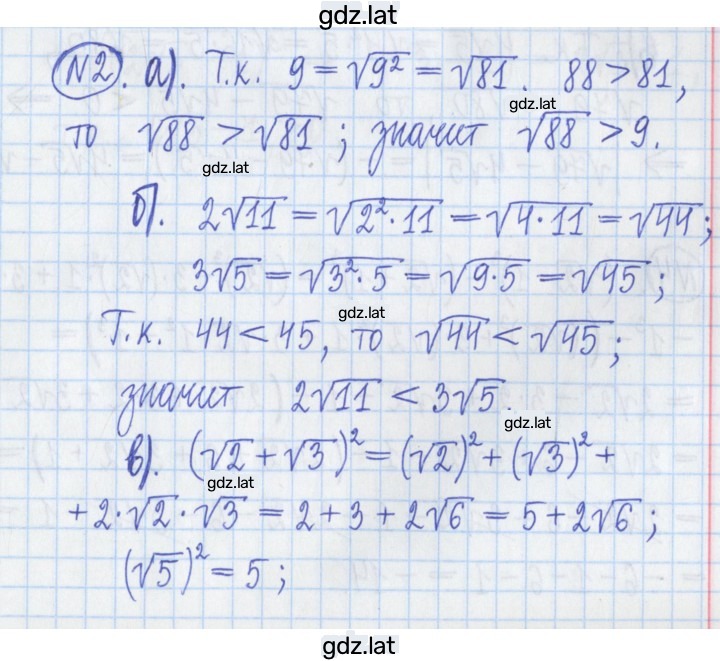 gdz.lat
N2. а). Т.к. 9 = √9² = √81. 88 > 81,
gdz.lat
то √88 > √81 ; значит √88 > 9.
gdz.lat
б). 2√11 = √2²·11 = √4·11 = √44;
3√5 = √3²·5 = √9·5 = √45;
gdz.lat
Т.к. 44 < 45, то √44 < √45;
значит 2√11 < 3√5.
gdz.lat
в). (√2 + √3)² = (√2)² + (√3)² +
gdz.lat
+ 2·√2·√3 = 2 + 3 + 2√6 = 5 + 2√6;
gdz.lat
(√5)² = 5;
gdz.lat